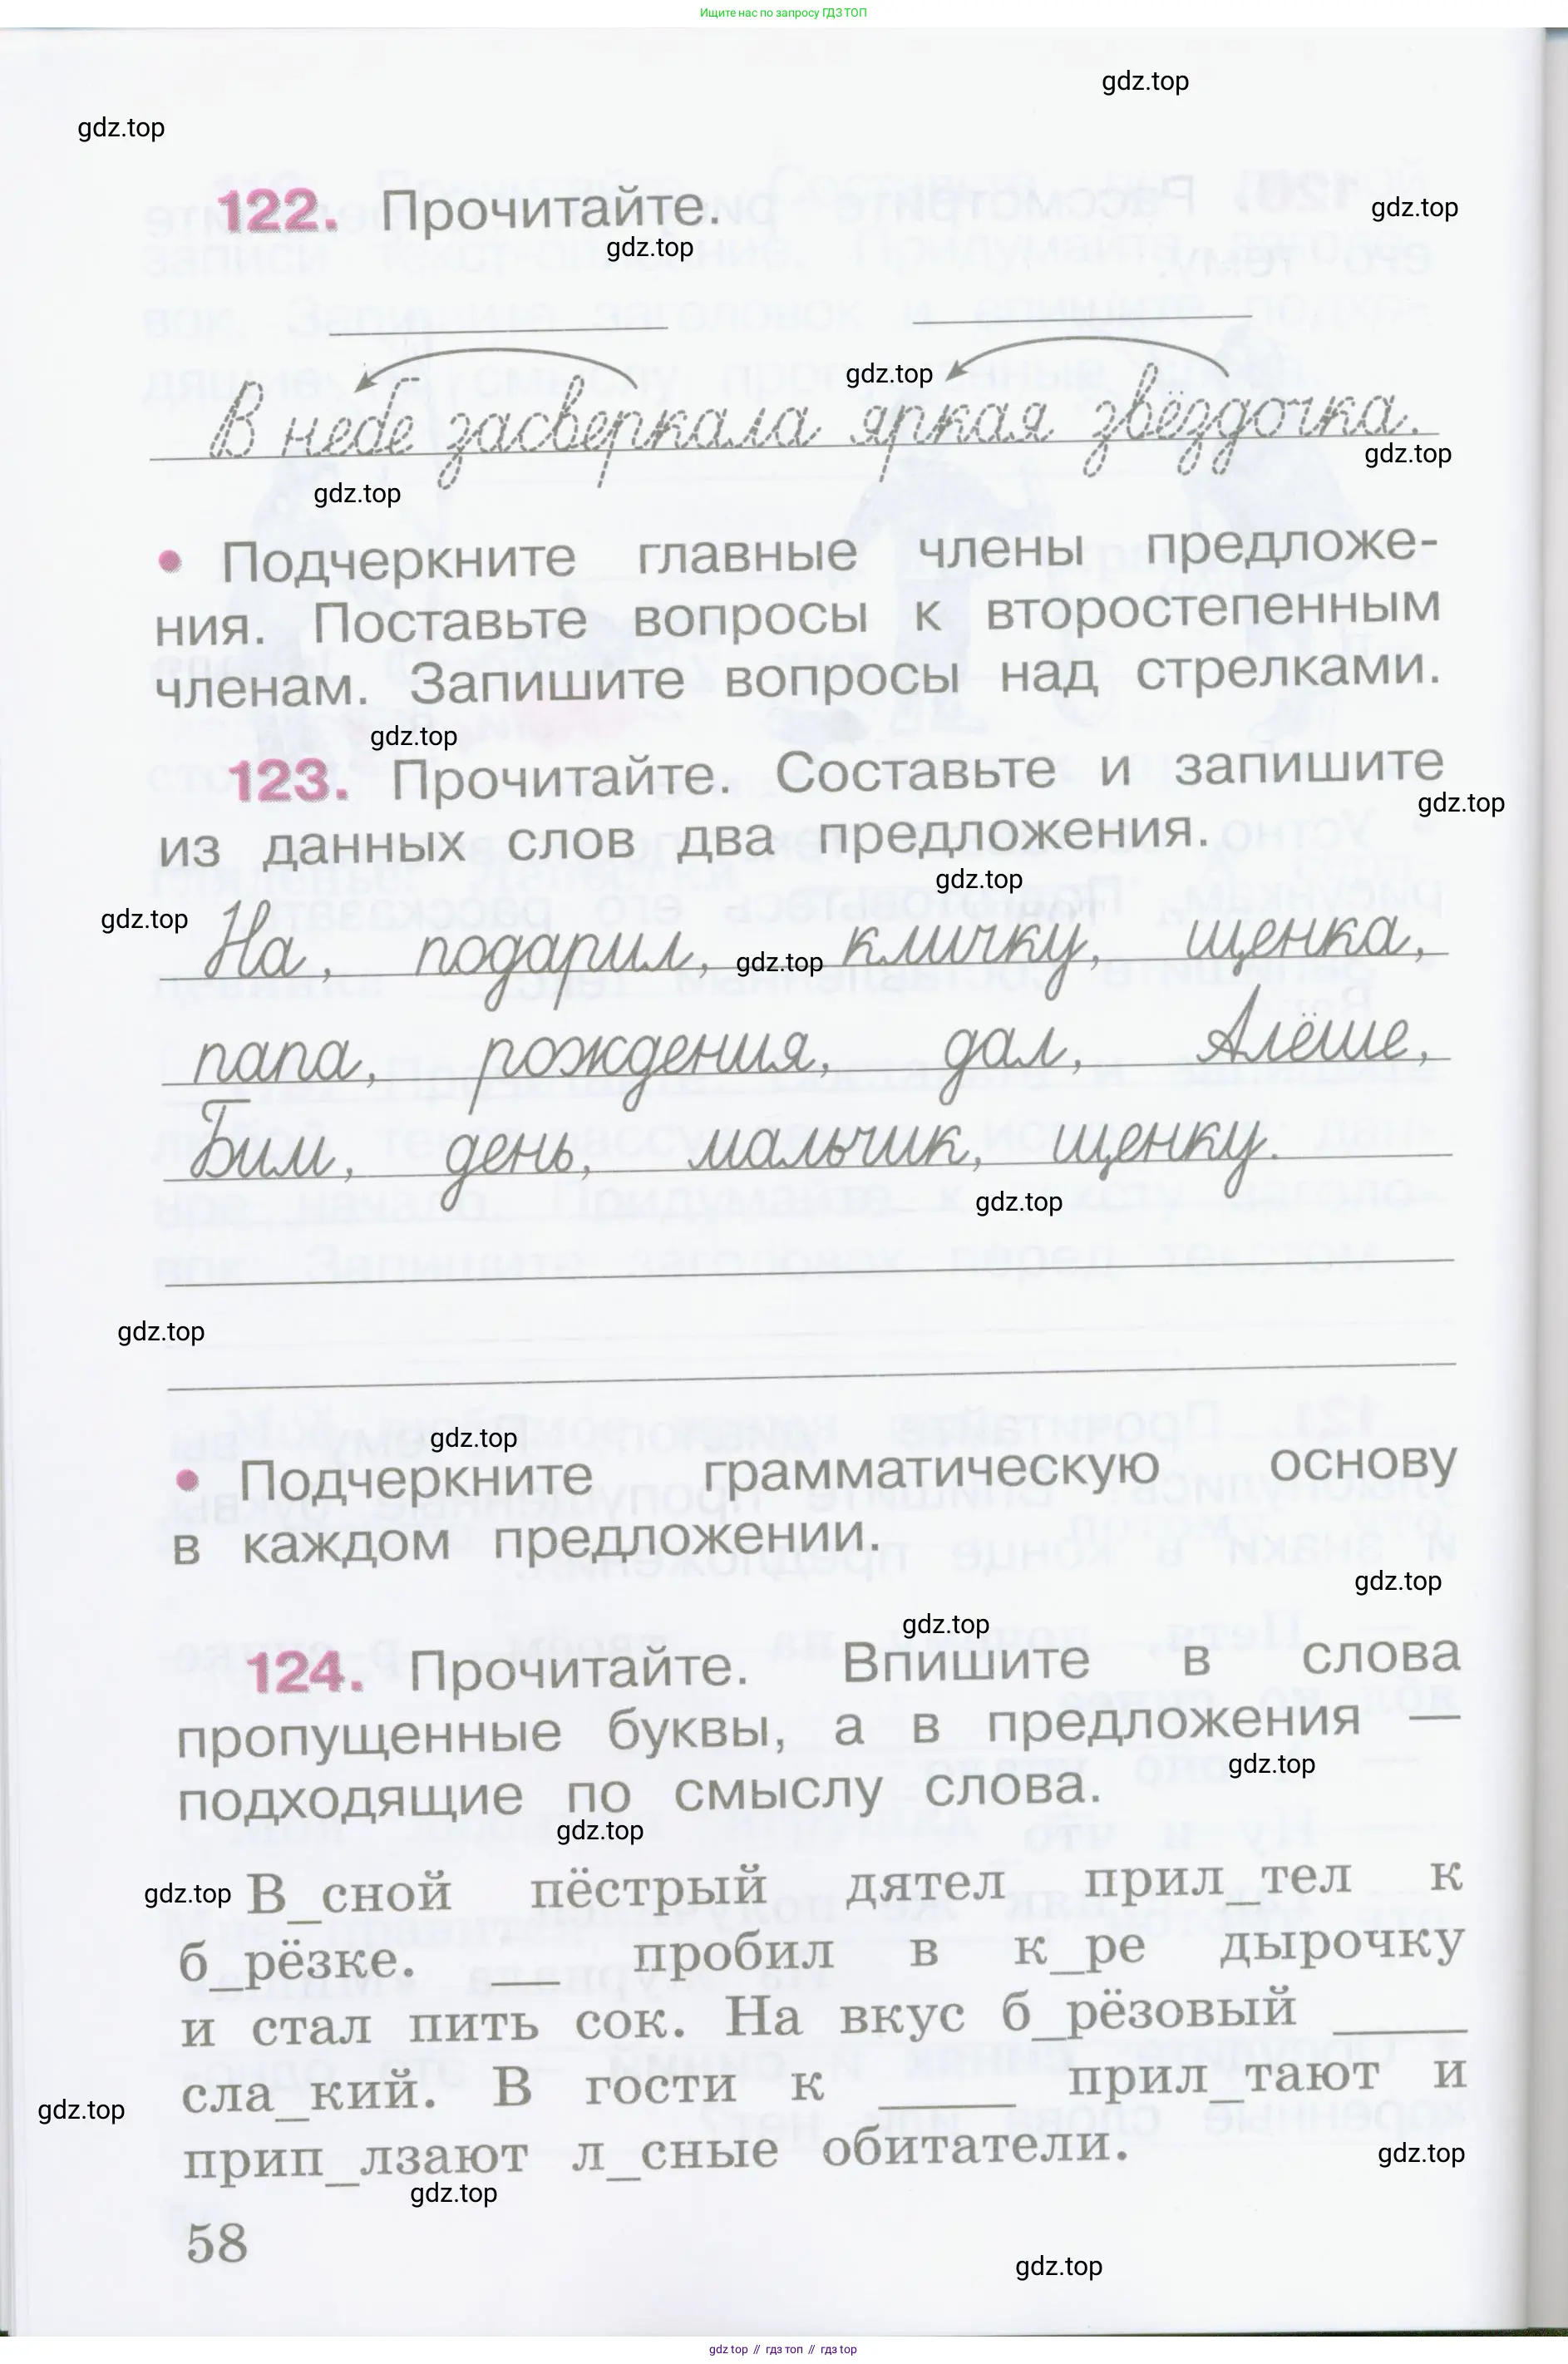 Ищите нас по запросу ГДЗ ТОП
gdz.top
gdz.top
122. Прочитайте.
gdz.top
gdz.top
gdz.top
В небе засверкала яркая звёздочка.
gdz.top
gdz.top
• Подчеркните главные члены предложе-
ния. Поставьте вопросы к второстепенным
членам. Запишите вопросы над стрелками.
gdz.top
123. Прочитайте. Составьте и запишите
gdz.top
из данных слов два предложения.
gdz.top
gdz.top
На, подарил, кличку, щенка,
gdz.top
папа, рождения, дал, Алёше,
Бим, день, мальчик, щенку.
gdz.top
gdz.top
gdz.top
• Подчеркните грамматическую основу
в каждом предложении.
gdz.top
gdz.top
124. Прочитайте. Впишите в слова
пропущенные буквы, а в предложения —
gdz.top
подходящие по смыслу слова.
gdz.top
gdz.top
В_сной пёстрый дятел прил_тел к
б_рёзке. __ пробил в к_ре дырочку
и стал пить сок. На вкус б_рёзовый ____
сла_кий. В гости к ____ прил_тают и
gdz.top
прип_лзают л_сные обитатели.
gdz.top
gdz.top
58
gdz.top
gdz top // гдз топ // гдз top